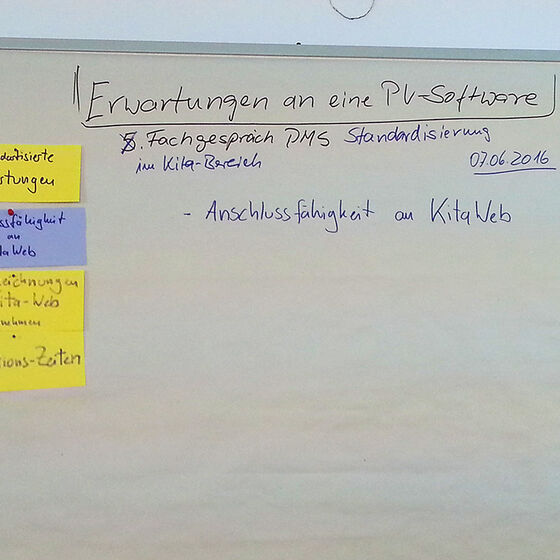 Erwartungen an eine PV-Software
5. Fachgespräch DMS Standardisierung
im Kita-Bereich
07.06.2016
- Anschlussfähigkeit an KitaWeb
dardisierte
stungen
ssfähigkeit
an
taWeb
eichnungen
ita-Web
nehmen
ions-Zeiten